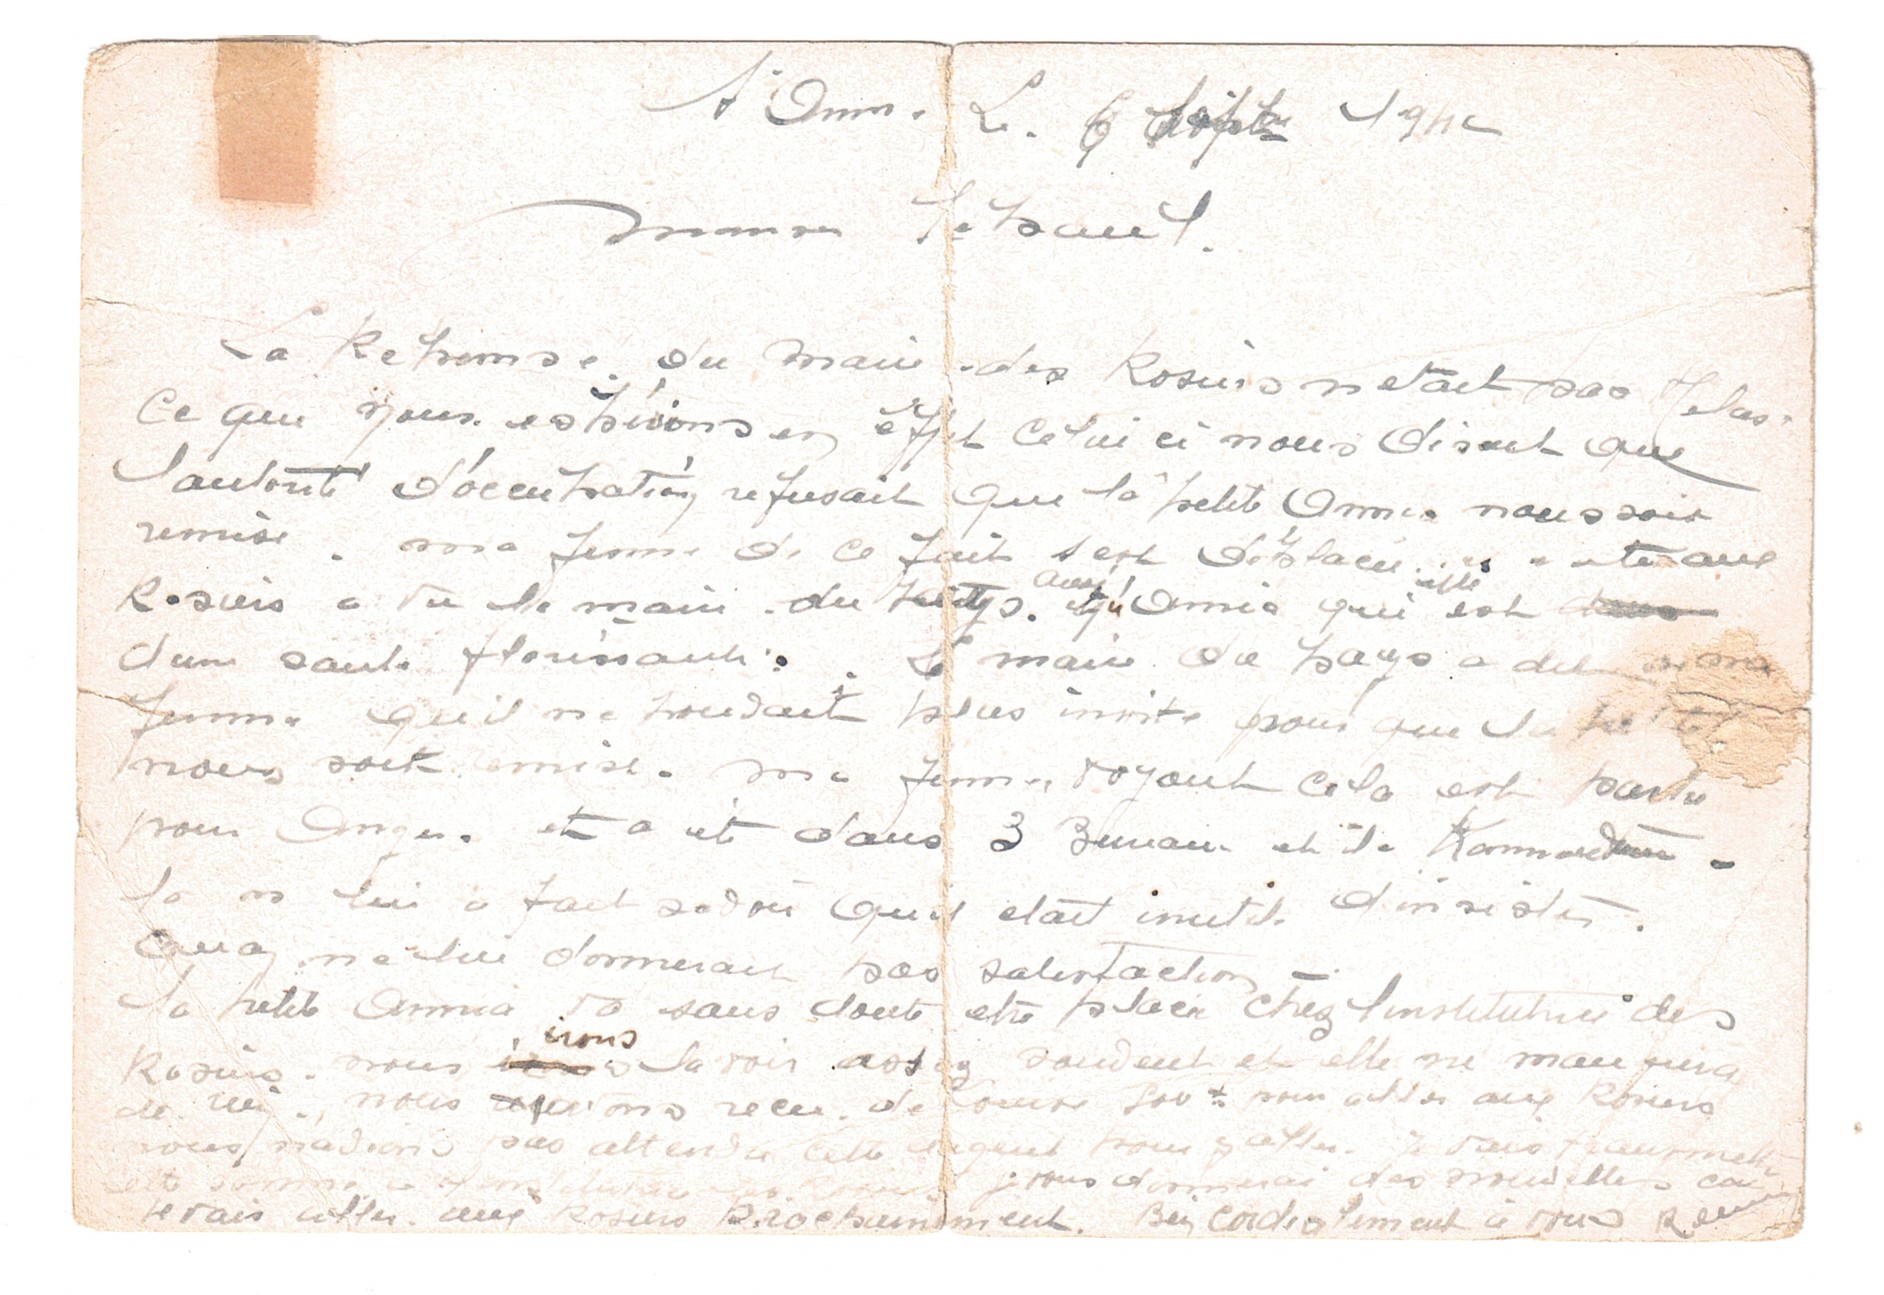 Le 6 Septbre 1942
La Reponse du maire des Rosiers netait pas Helas
ce que nous esperions en effet celui ci nous disait que
l'autorité d'occupation refusait que la petite Annie nous soit
remise. ma femme de ce fait s'est déplacée et a eté aux
Rosiers a vu le maire du pays. ainsi qu'Annie qui elle est
d'une sante florissante. Le maire du pays a dit a ma
femme qu'il ne voudrait plus pour que la petite
nous soit remise. ma femme voyant cela est partie
pour Angers. et a eté dans 3 Bureau et la Kommandantur
la on lui a fait savoir qu'il etait inutile d'insister.
qu'on ne lui donnerait pas satisfaction
la petite Annie va sans doute etre placer chez l'institutrice des
Rosiers. nous irons la voir assez souvent et elle ne manquera
de rien, nous avons recu de pour aller aux Rosiers
nous n'avions pas attendu cette argent pour y aller. Je vais transmettre
cette somme a l'institutrice des Rosiers je vous donnerai des nouvelles car
je vais aller aux Rosiers Prochainement. Bien cordialement a vous